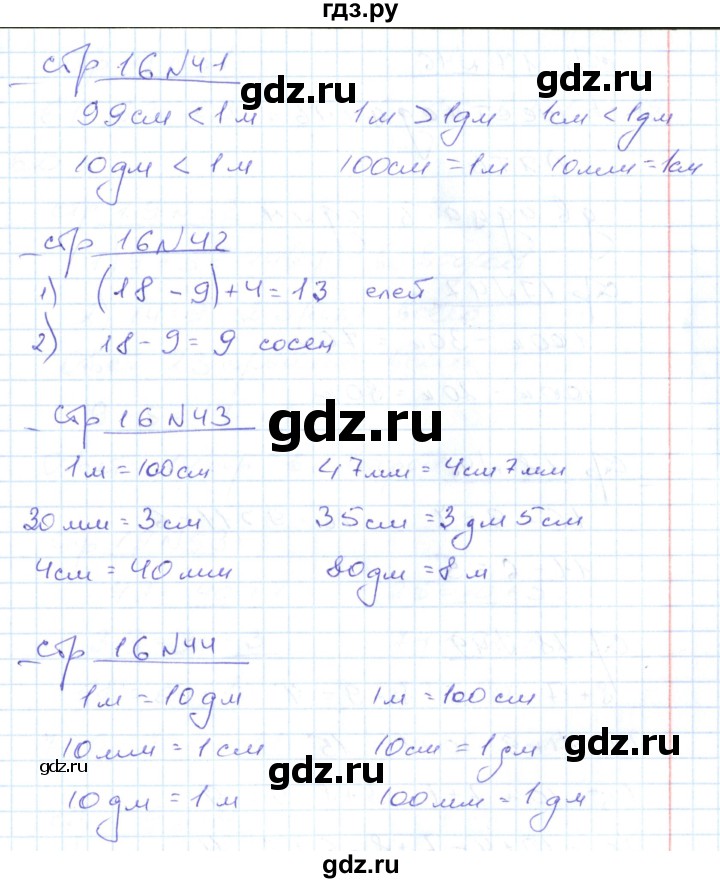 гдз.ру
стр 16 №41
gdz.ru gdz.ru
99см < 1м 1м > 1дм 1см < 1дм
10дм < 1м 100см = 1м 10мм = 1см
стр 16 №42
1) (18 - 9) + 4 = 13 елей
2) 18 - 9 = 9 сосен
gdz.ru
стр 16 №43
1м = 100см 47мм = 4см 7мм
30мм = 3см 35см = 3дм 5см
4см = 40мм 80дм = 8м
стр 16 №44
1м = 10дм 1м = 100см
10мм = 1см 10см = 1дм
gdz.ru gdz.ru gdz.ru
10дм = 1м 100мм = 1дм
gdz.ru